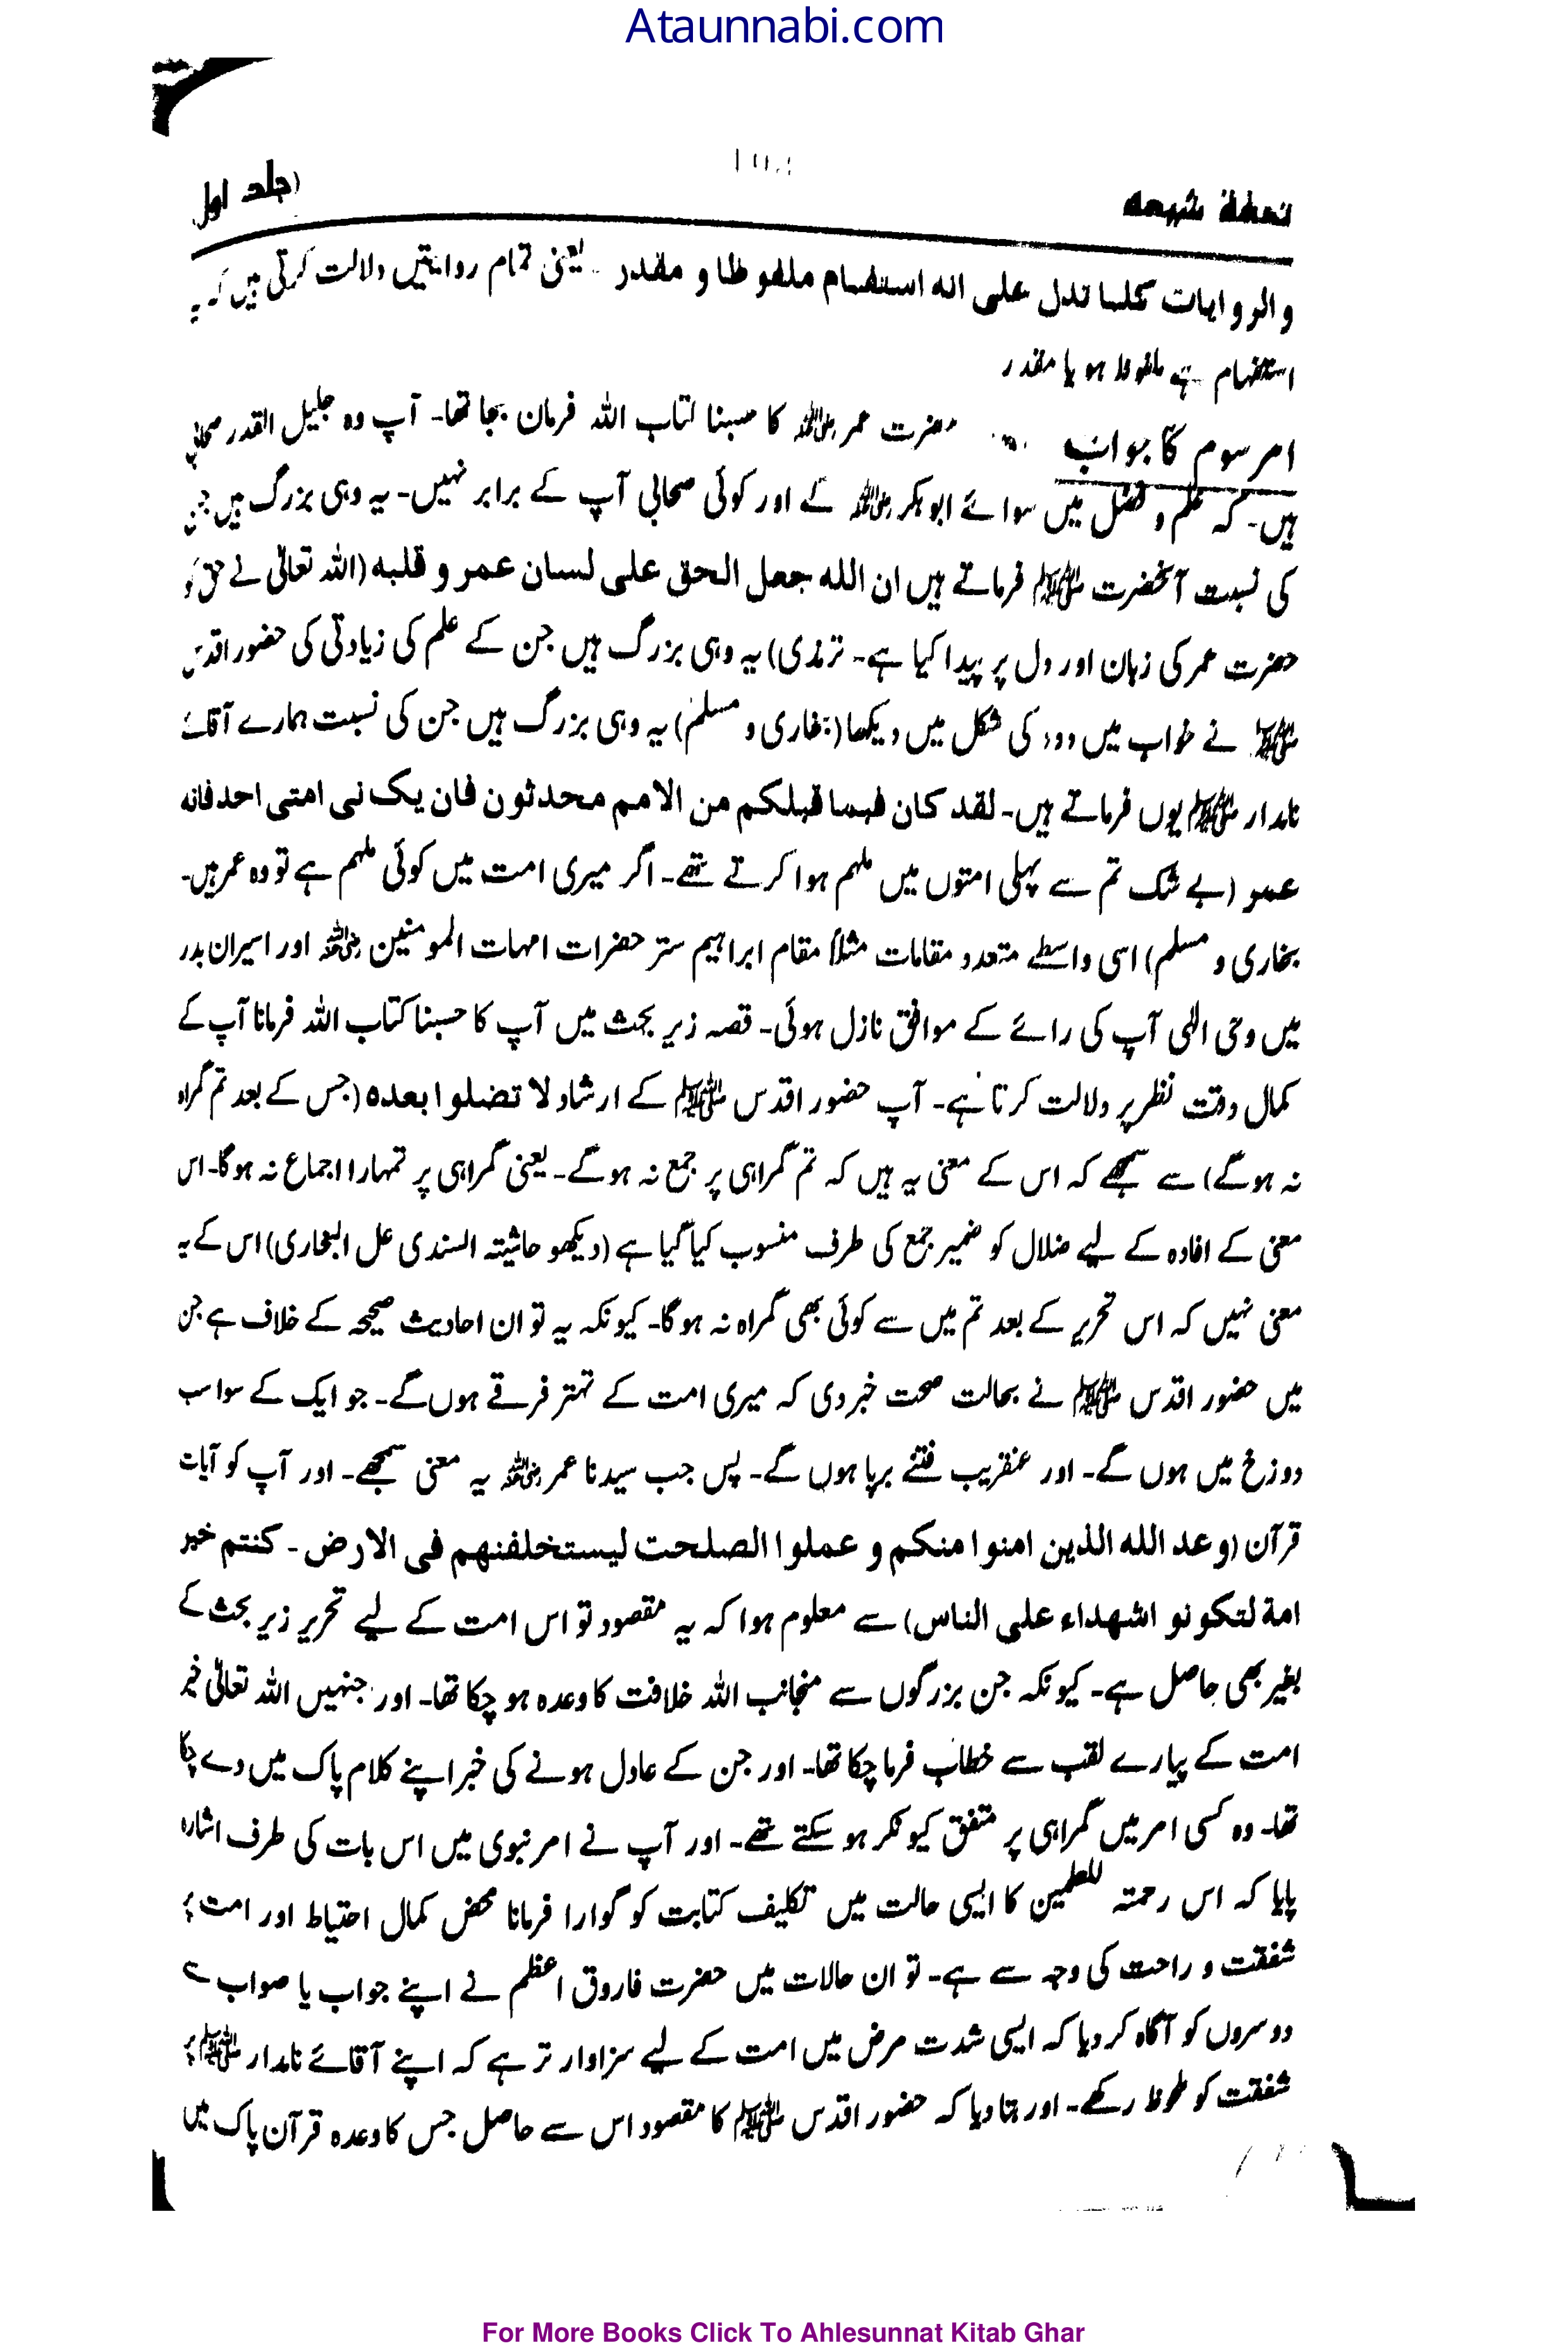 Ataunnabi.com
جلد اول
تحفۂ شیعہ
والروایات کلها تدل علی انه استفهام ملفوظا و مقدر یعنی تمام روایتیں دلالت کرتی ہیں کہ یہ
استفہام ہے ملفوظ ہو یا مقدر
امر سوم کا جواب حضرت عمر رضی اللہ عنہ کا حسبنا کتاب اللہ فرمان بجا تھا۔ آپ وہ جلیل القدر صحابی
ہیں۔ کہ علم و فضل میں سوائے ابوبکر رضی اللہ عنہ کے اور کوئی صحابی آپ کے برابر نہیں۔ یہ وہی بزرگ ہیں جن
کی نسبت آنحضرت ﷺ فرماتے ہیں ان الله جعل الحق علی لسان عمر و قلبه (اللہ تعالیٰ نے حق کو
حضرت عمر کی زبان اور دل پر پیدا کیا ہے۔ ترمذی) یہ وہی بزرگ ہیں جن کے علم کی زیادتی کی حضور اقدس
ﷺ نے خواب میں دودھ کی شکل میں دیکھا (بخاری و مسلم) یہ وہی بزرگ ہیں جن کی نسبت ہمارے آقائے
نامدار ﷺ یوں فرماتے ہیں۔ لقد کان فیما قبلکم من الامم محدثون فان یک فی امتی احد فانه
عمر (بے شک تم سے پہلی امتوں میں ملہم ہوا کرتے تھے۔ اگر میری امت میں کوئی ملہم ہے تو وہ عمر ہیں۔
بخاری و مسلم) اسی واسطے متعدد مقامات مثلاً مقام ابراہیم ستر حضرات امہات المومنین رضی اللہ عنہن اور اسیران بدر
میں وحی الٰہی آپ کی رائے کے موافق نازل ہوئی۔ قصہ زیر بحث میں آپ کا حسبنا کتاب اللہ فرمانا آپ کے
کمال دقت نظر پر دلالت کرتا ہے۔ آپ حضور اقدس ﷺ کے ارشاد لا تضلوا بعده (جس کے بعد تم گمراہ
نہ ہوگے) سے سمجھے کہ اس کے معنی یہ ہیں کہ تم گمراہی پر جمع نہ ہوگے۔ یعنی گمراہی پر تمہارا اجماع نہ ہوگا۔ اس
معنی کے افادہ کے لیے ضلال کو ضمیر جمع کی طرف منسوب کیا گیا ہے (دیکھو حاشیتہ السندی علی البخاری) اس کے یہ
معنی نہیں کہ اس تحریر کے بعد تم میں سے کوئی بھی گمراہ نہ ہوگا۔ کیونکہ یہ تو ان احادیث صحیحہ کے خلاف ہے جن
میں حضور اقدس ﷺ نے بحالت صحت خبر دی کہ میری امت کے تہتر فرقے ہوں گے۔ جو ایک کے سوا سب
دوزخ میں ہوں گے۔ اور عنقریب فتنے برپا ہوں گے۔ پس جب سیدنا عمر رضی اللہ عنہ یہ معنی سمجھے۔ اور آپ کو آیات
قرآن (وعد الله الذین امنوا منکم و عملوا الصلحت لیستخلفنهم فی الارض۔ کنتم خیر
امة لتکونو اشهداء علی الناس) سے معلوم ہوا کہ یہ مقصود تو اس امت کے لیے تحریر زیر بحث کے
بغیر بھی حاصل ہے۔ کیونکہ جن بزرگوں سے منجانب اللہ خلافت کا وعدہ ہو چکا تھا۔ اور جنہیں اللہ تعالیٰ خیر
امت کے پیارے لقب سے خطاب فرما چکا تھا۔ اور جن کے عادل ہونے کی خبر اپنے کلام پاک میں دے چکا
تھا۔ وہ کسی امر میں گمراہی پر متفق کیونکر ہو سکتے تھے۔ اور آپ نے امر نبوی میں اس بات کی طرف اشارہ
پایا کہ اس رحمتہ للعلمین کا ایسی حالت میں تکلیف کتابت کو گوارا فرمانا محض کمال احتیاط اور امت پر
شفقت و راحت کی وجہ سے ہے۔ تو ان حالات میں حضرت فاروق اعظم نے اپنے جواب با صواب سے
دوسروں کو آگاہ کر دیا کہ ایسی شدت مرض میں امت کے لیے سزاوار تر ہے کہ اپنے آقائے نامدار ﷺ پر
شفقت کو ملحوظ رکھے۔ اور بتا دیا کہ حضور اقدس ﷺ کا مقصود اس سے حاصل جس کا وعدہ قرآن پاک میں
For More Books Click To Ahlesunnat Kitab Ghar